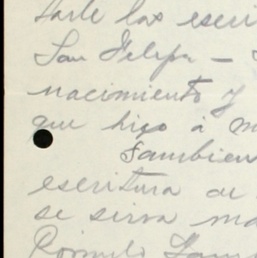 darle las escri
San Felipe -
nacimiento y
que hizo á m
Tambien
escritura de
se sirva ma
Rómulo